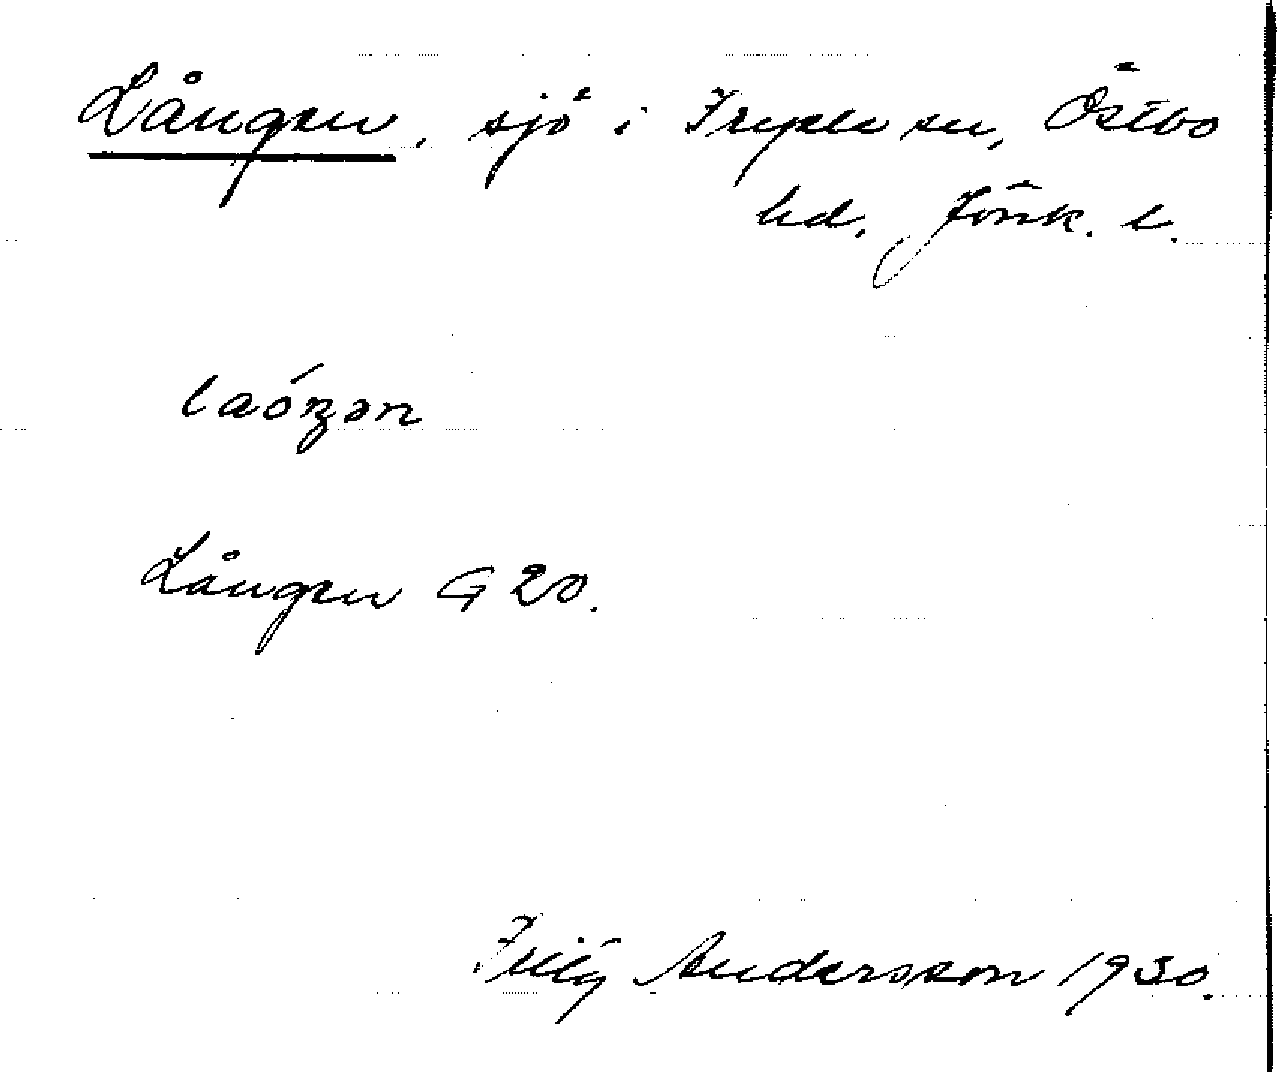 Lången, sjö i Fryele sn, Östbo
hd. Jönk. l.
laóŋən
Lången G 20.
Andersson 1930.